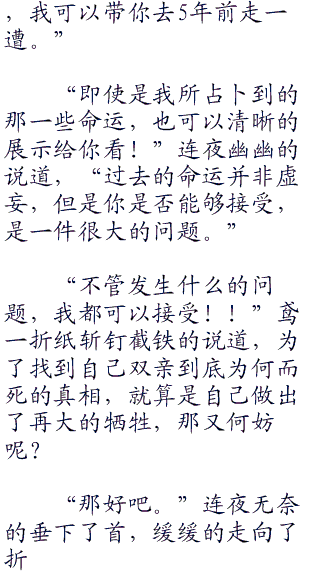 ，我可以带你去5年前走一
遭。”
“即使是我所占卜到的
那一些命运，也可以清晰的
展示给你看！”连夜幽幽的
说道，“过去的命运并非虚
妄，但是你是否能够接受，
是一件很大的问题。”
“不管发生什么的问
题，我都可以接受！！”鸢
一折纸斩钉截铁的说道，为
了找到自己双亲到底为何而
死的真相，就算是自己做出
了再大的牺牲，那又何妨
呢？
“那好吧。”连夜无奈
的垂下了首，缓缓的走向了
折